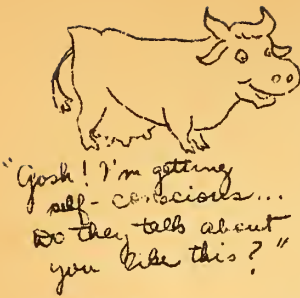 "Gosh! I'm getting
self-conscious...
Do they talk about
you like this?"